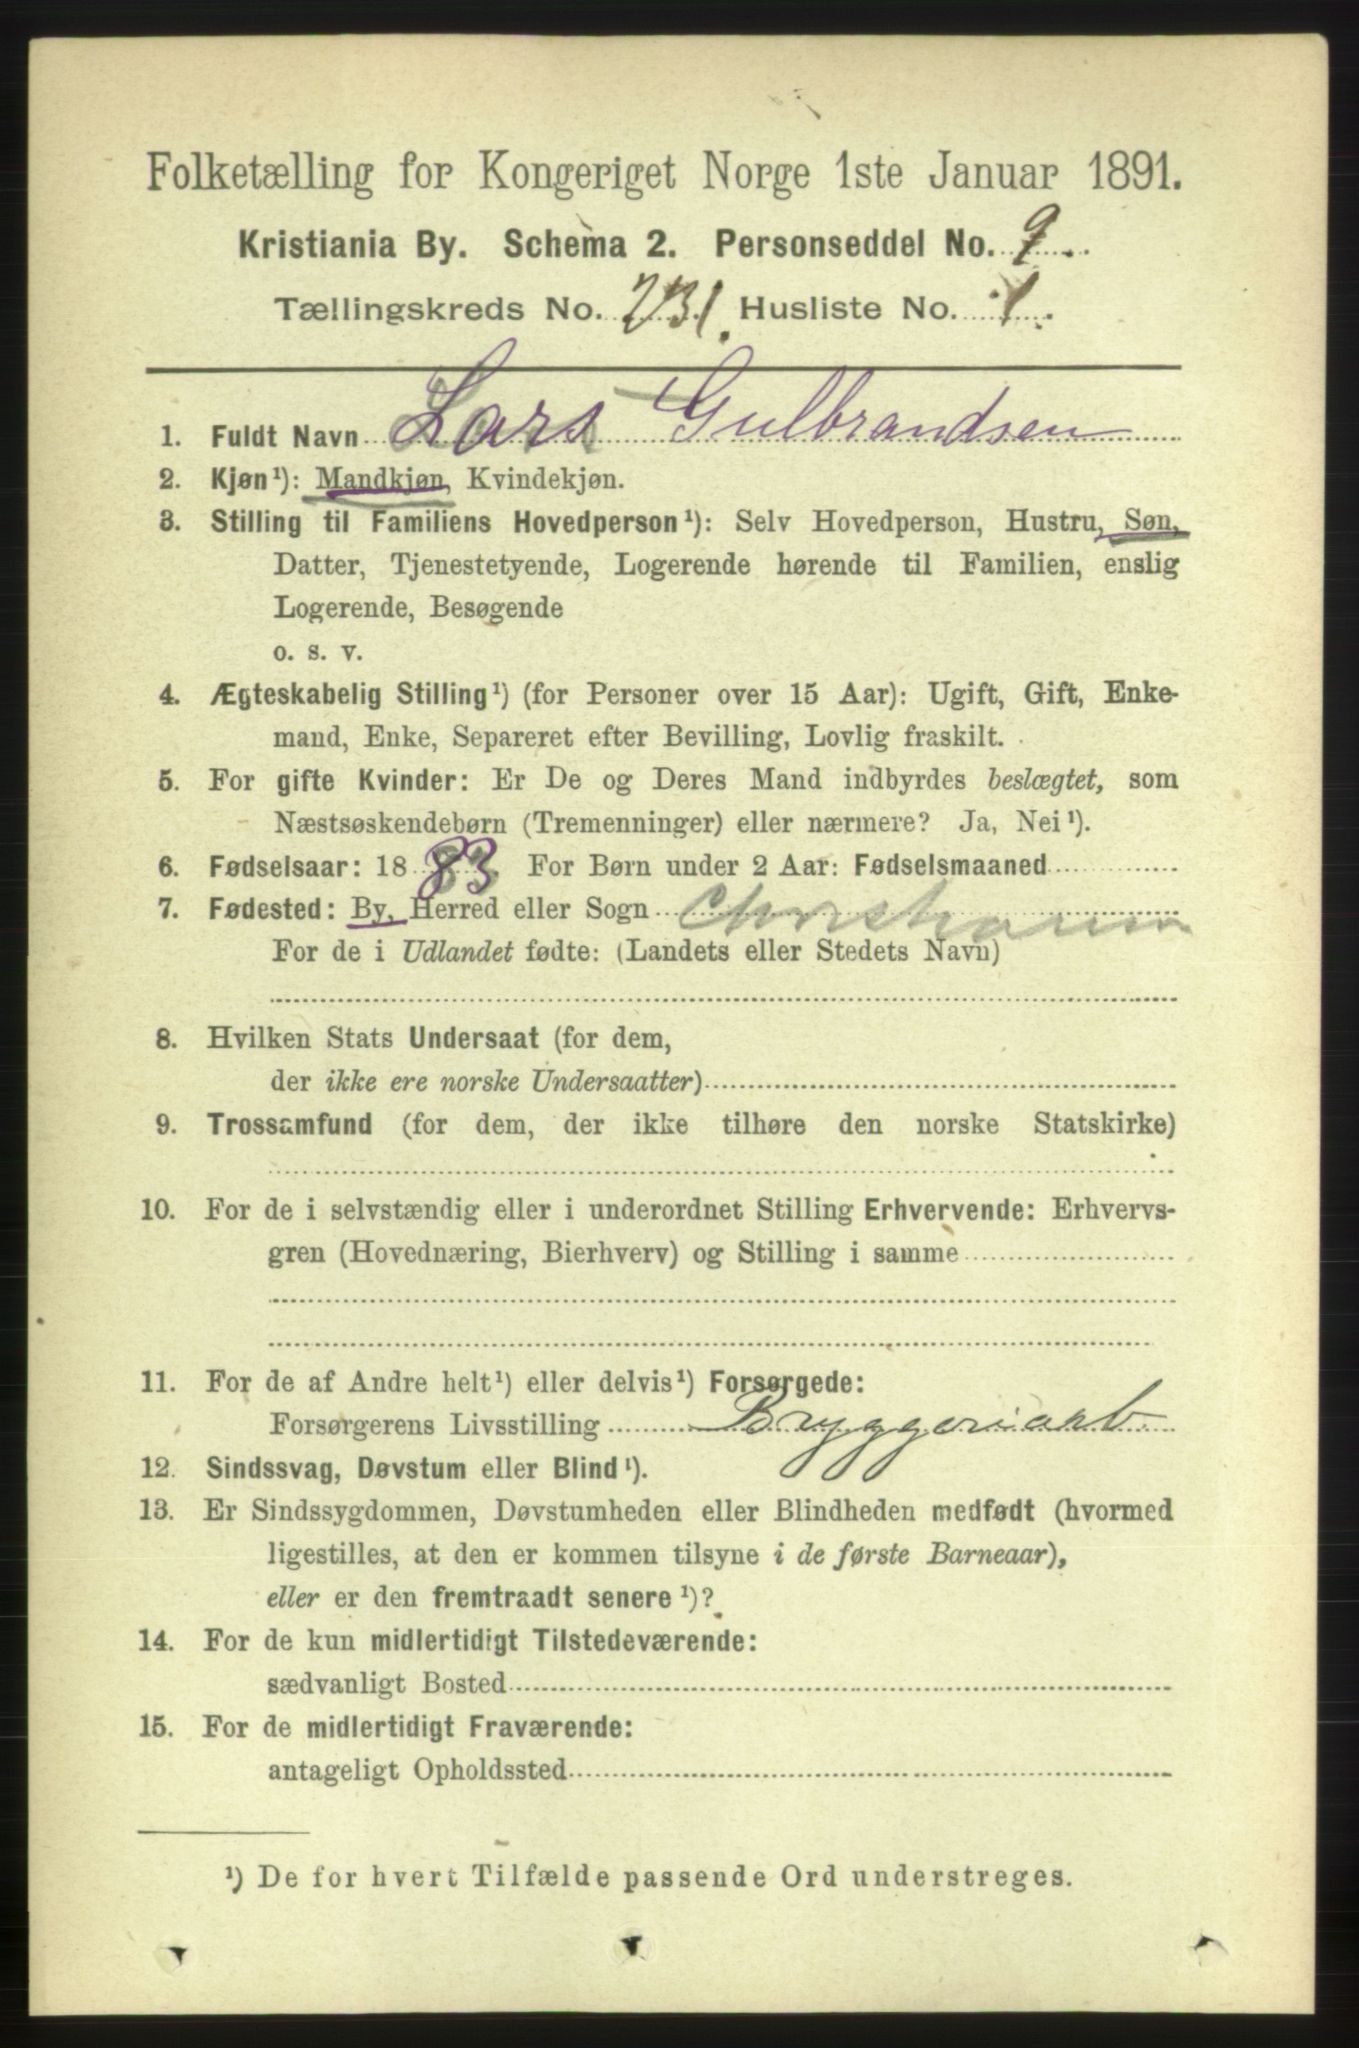 Folketælling for Kongeriget Norge 1ste Januar 1891.
Kristiania By. Schema 2. Personseddel No. 9.
Tællingskreds No. 231. Husliste No. 1.
1. Fuldt Navn Lars Gulbrandsen
2. Kjøn¹): Mandkjøn, Kvindekjøn.
3. Stilling til Familiens Hovedperson¹): Selv Hovedperson, Hustru, Søn,
Datter, Tjenestetyende, Logerende hørende til Familien, enslig
Logerende, Besøgende
o. s. v.
4. Ægteskabelig Stilling¹) (for Personer over 15 Aar): Ugift, Gift, Enke-
mand, Enke, Separeret efter Bevilling, Lovlig fraskilt.
5. For gifte Kvinder: Er De og Deres Mand indbyrdes beslægtet, som
Næstsøskendebørn (Tremenninger) eller nærmere? Ja, Nei¹).
6. Fødselsaar: 1883. For Børn under 2 Aar: Fødselsmaaned
7. Fødested: By, Herred eller Sogn Christiania
For de i Udlandet fødte: (Landets eller Stedets Navn)
8. Hvilken Stats Undersaat (for dem,
der ikke ere norske Undersaatter)
9. Trossamfund (for dem, der ikke tilhøre den norske Statskirke)
10. For de i selvstændig eller i underordnet Stilling Erhvervende: Erhvervs-
gren (Hovednæring, Bierhverv) og Stilling i samme
11. For de af Andre helt¹) eller delvis¹) Forsørgede:
Forsørgerens Livsstilling Bryggeriarb
12. Sindssvag, Døvstum eller Blind¹).
13. Er Sindssygdommen, Døvstumheden eller Blindheden medfødt (hvormed
ligestilles, at den er kommen tilsyne i de første Barneaar),
eller er den fremtraadt senere¹)?
14. For de kun midlertidigt Tilstedeværende:
sædvanligt Bosted
15. For de midlertidigt Fraværende:
antageligt Opholdssted
¹) De for hvert Tilfælde passende Ord understreges.